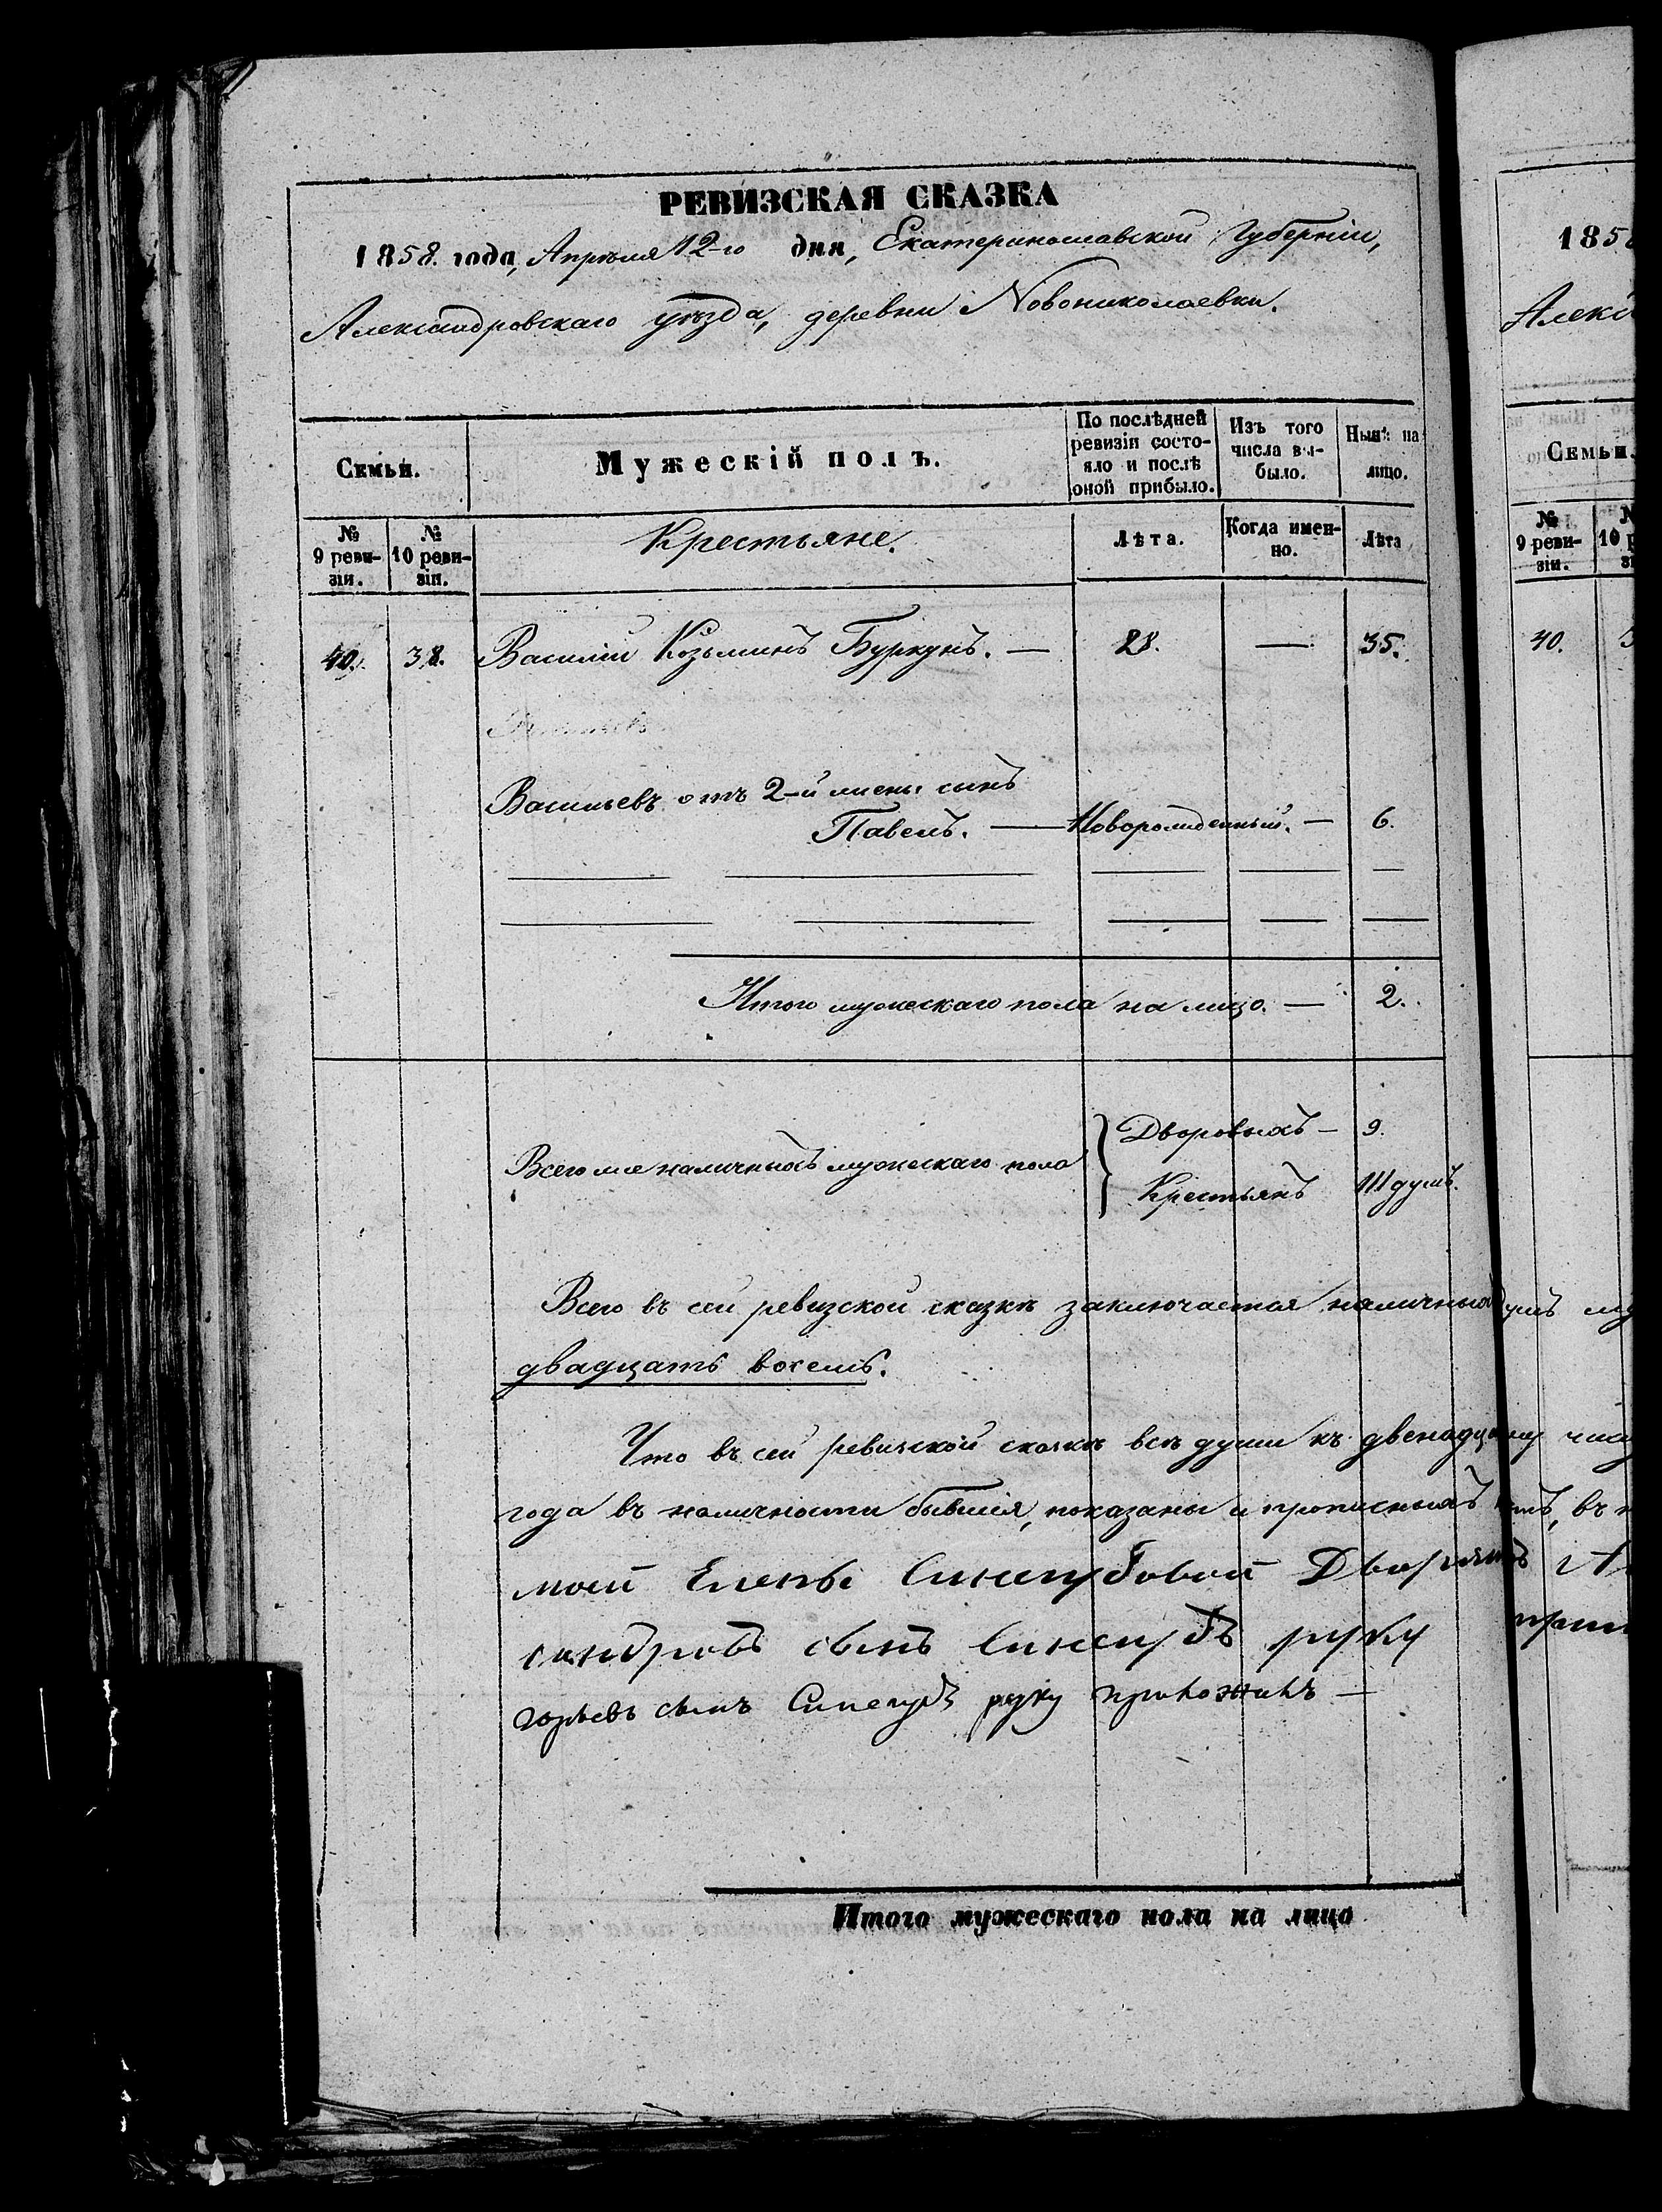 РЕВИЗСКАЯ СКАЗКА
1858. года, Апрѣля 12-го дня, Екатеринославской Губерніи,
Александровскаго уѣзда, деревни Новониколаевки.
Семьи.
Мужескій полъ.
По послѣдней ревизіи состо-
яло и послѣ оной прибыло.
Изъ того числа вы-
было.
Нынѣ на лицо.
№ 9 реви-
зіи.
№ 10 реви-
зіи.
Крестьяне.
Лѣта.
Когда имен-
но.
Лѣта
40. 38. Василій Козьминъ Буркунъ. — 28. — 35.
Васильевъ отъ 2-й жены сынъ
Павелъ. — Новорожденный. — 6.
Итого мужескаго пола на лицо. — 2.
Всего же наличныхъ мужескаго пола
Дворовыхъ — 9.
Крестьянъ 111 душъ.
Всего въ сей ревизской сказкѣ заключается наличныхъ
двадцать восемь.
Что въ сей ревизской сказкѣ всѣ души къ
года въ наличности бывшія, показаны и прописныхъ
моей Елены Синегубовой
сандровъ сынъ Синегубъ руку
горьевъ сынъ Синегубъ руку приложилъ —
Итого мужескаго пола на лицо
185
Алекс
Семьи.
№ 9 реви-
зіи.
40.